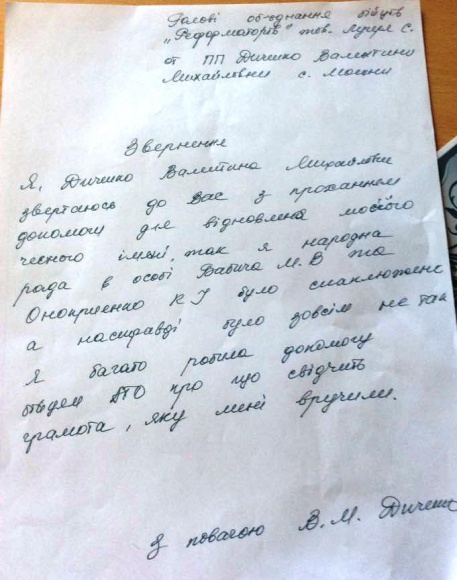 Голові об'єднання бійців
„Реформаторів" тов. Лунул С.
от ПП Диченко Валентини
Михайлівни с. Мошни
Звернення
Я, Диченко Валентина Михайлівна
звертаюсь до Вас з проханням
допомоги для відновлення моєого
чесного імені, так я народна
рада в особі Бабича М.В та
Оноприенко К І було сплюжене
а насправді було зовсім не так
Я багато робила допомогу
бійцям АТО про що свідчить
грамота, яку мені вручили.
З повагою В. М. Диченко